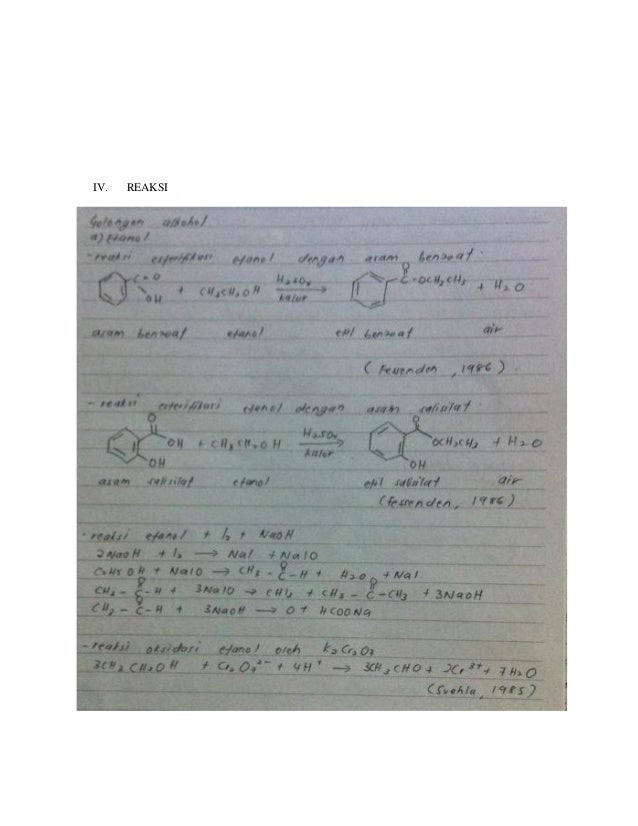 IV. REAKSI
Golongan alkohol
a) Etanol
- reaksi esterifikasi etanol dengan asam benzoat.
C=O OH + CH3CH2OH H2SO4 kalor → O C-OCH2CH3 + H2O
asam benzoat etanol etil benzoat air
(Fessenden, 1986)
- reaksi esterifikasi etanol dengan asam salisilat.
O OH OH + CH3CH2OH H2SO4 kalor → O OCH2CH3 OH + H2O
asam salisilat etanol etil salisilat air
(Fessenden, 1986)
- reaksi etanol + I2 + NaOH
2NaOH + I2 → NaI + NaIO
C2H5OH + NaIO → CH3 - C - H + H2O + NaI
CH3 - C - H + 3NaIO → CHI3 + CH3 - C - CH3 + 3NaOH
CH3 - C - H + 3NaOH → O + HCOONa
- reaksi oksidasi etanol oleh K2Cr2O7
3CH3CH2OH + Cr2O7²⁻ + 4H⁺ → 3CH3CHO + 2Cr³⁺ + 7H2O
(Svehla, 1985)